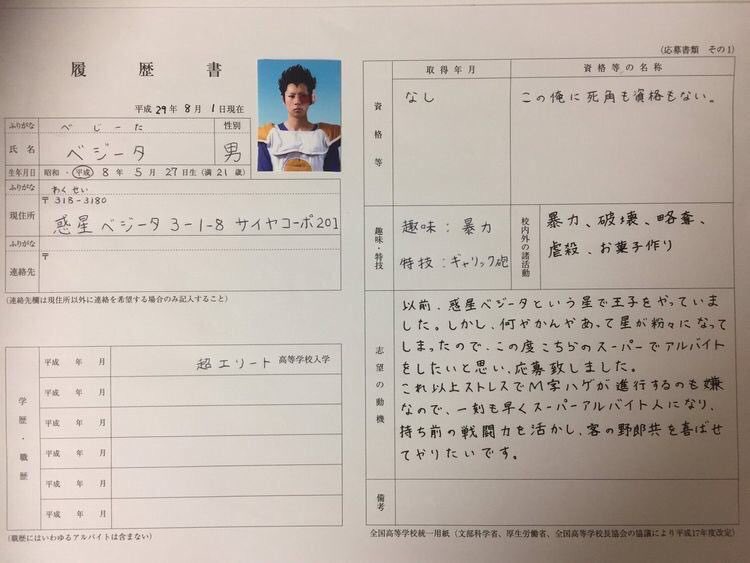 履歴書
平成 29年 8月 1日現在
ふりがな べじーた 性別
氏名 ベジータ 男
生年月日 昭和・平成 8年 5月 27日生(満21歳)
ふりがな わくせい
現住所 〒318-3180
惑星ベジータ3-1-8 サイヤコーポ201
ふりがな
連絡先 〒
(連絡先欄は現住所以外に連絡を希望する場合のみ記入すること)
学歴・職歴
平成 年 月 超エリート 高等学校入学
平成 年 月
平成 年 月
平成 年 月
平成 年 月
平成 年 月
(職歴にはいわゆるアルバイトは含まない)
(応募書類 その1)
資格等
取得年月 資格等の名称
なし この俺に死角も資格もない。
趣味・特技
趣味:暴力
特技:ギャリック砲
校内外の諸活動
暴力、破壊、略奪、
虐殺、お菓子作り
志望の動機
以前、惑星ベジータという星で王子をやっていま
した。しかし、何やかんやあって星が粉々になって
しまったので、この度こちらのスーパーでアルバイト
をしたいと思い、応募致しました。
これ以上ストレスでM字ハゲが進行するのも嫌
なので、一刻も早くスーパーアルバイト人になり、
持ち前の戦闘力を活かし、客の野郎共を喜ばせ
てやりたいです。
備考
全国高等学校統一用紙(文部科学省、厚生労働省、全国高等学校長協会の協議により平成17年度改定)